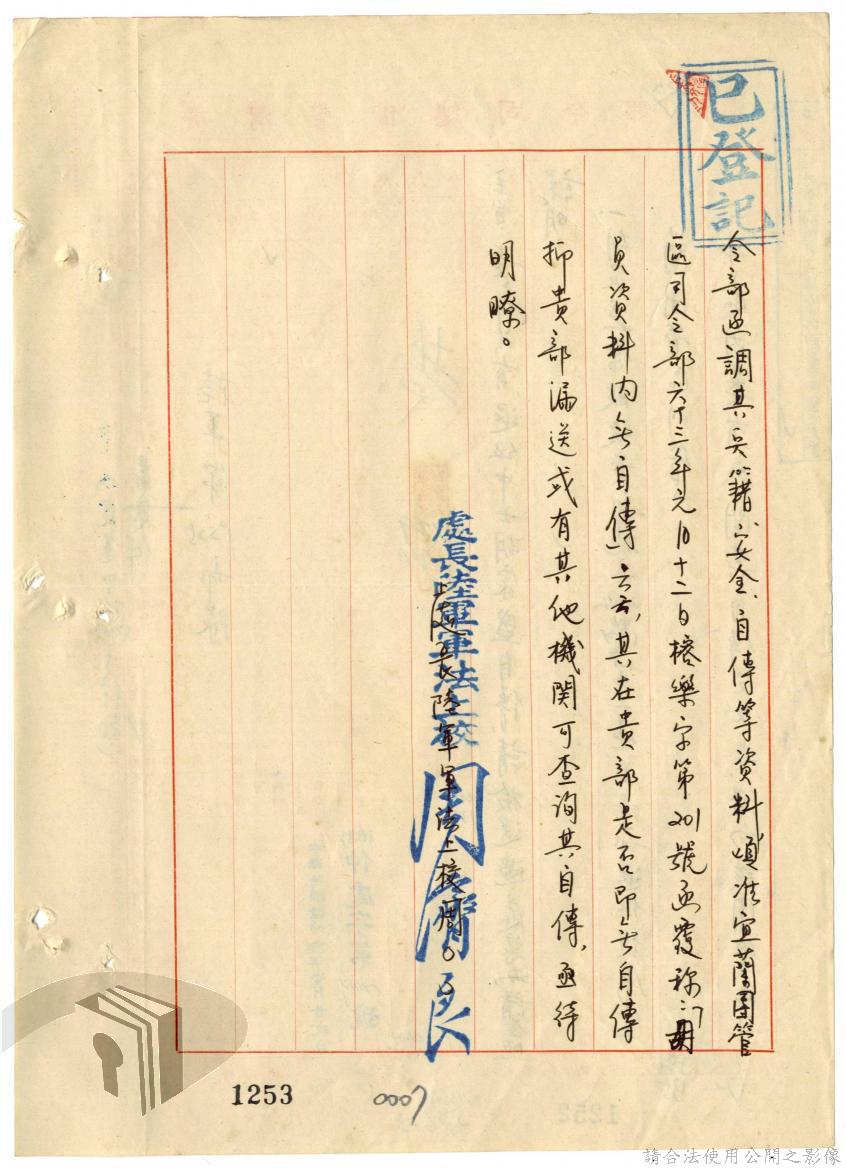 已登記
令部函調其兵籍、安全、自傳等資料，頃准宜蘭團管
區司令部六十三年元月十二日榕樂字第201號函覆稱：「胡
員資料內無自傳」云云，其在貴部是否即無自傳
抑貴部漏送或有其他機関可查詢其自傳，亟待
明瞭。
處長陸軍軍法上校
處長陸軍軍法上校周○○
1253
0007
請合法使用公開之影像